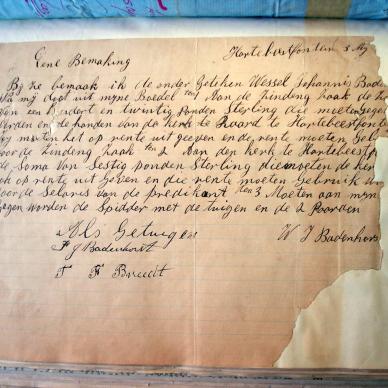 Eene Bemaking Hartebeestfontein 5 My
By ze bemaak ik de onder Geteken Wessel Johannis Baden
Na mij dood uit myne Boedel ten 1 Aan de Zinding zaak de
een Hondert en twintig ponden Sterling die moeten
worden en de handen van de kerk te Raard te Hartebeestfon
op rente uit geeven en de rente moeten Geb
voor de Zinding zaak ten 2 Aan den kerk te Hartebeestf
de Soma van Sestig ponden Sterling die moeten de ker
ok op rente uit Geeven en die rente moeten Gebruik
voor de Selaris van de predikant ten 3 Moeten aan myn
worden de Spidder met de tuigen en de 2 Paarden
Als Getuigen
F J Badenhorst W J Badenhors
F F Breedt